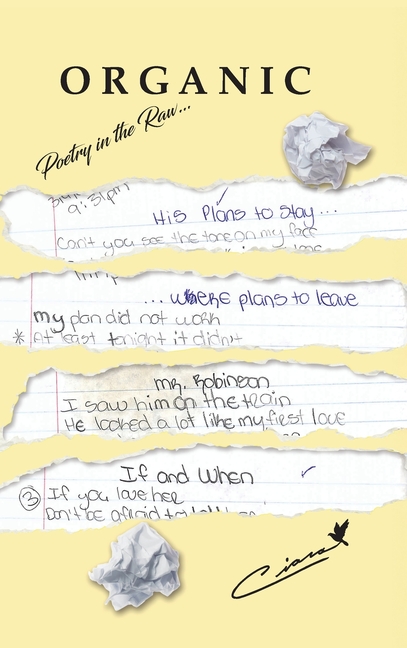 ORGANIC
Poetry in the Raw...
9:31pm
His Plans to stay...
Can't you see the tone on my face
...Where plans to leave
my plan did not work
* At least tonight it didn't
mr. Robinson
I saw him on the train
He looked a lot like my first love
If and When
3 If you love her
Don't be afraid to
Ciara